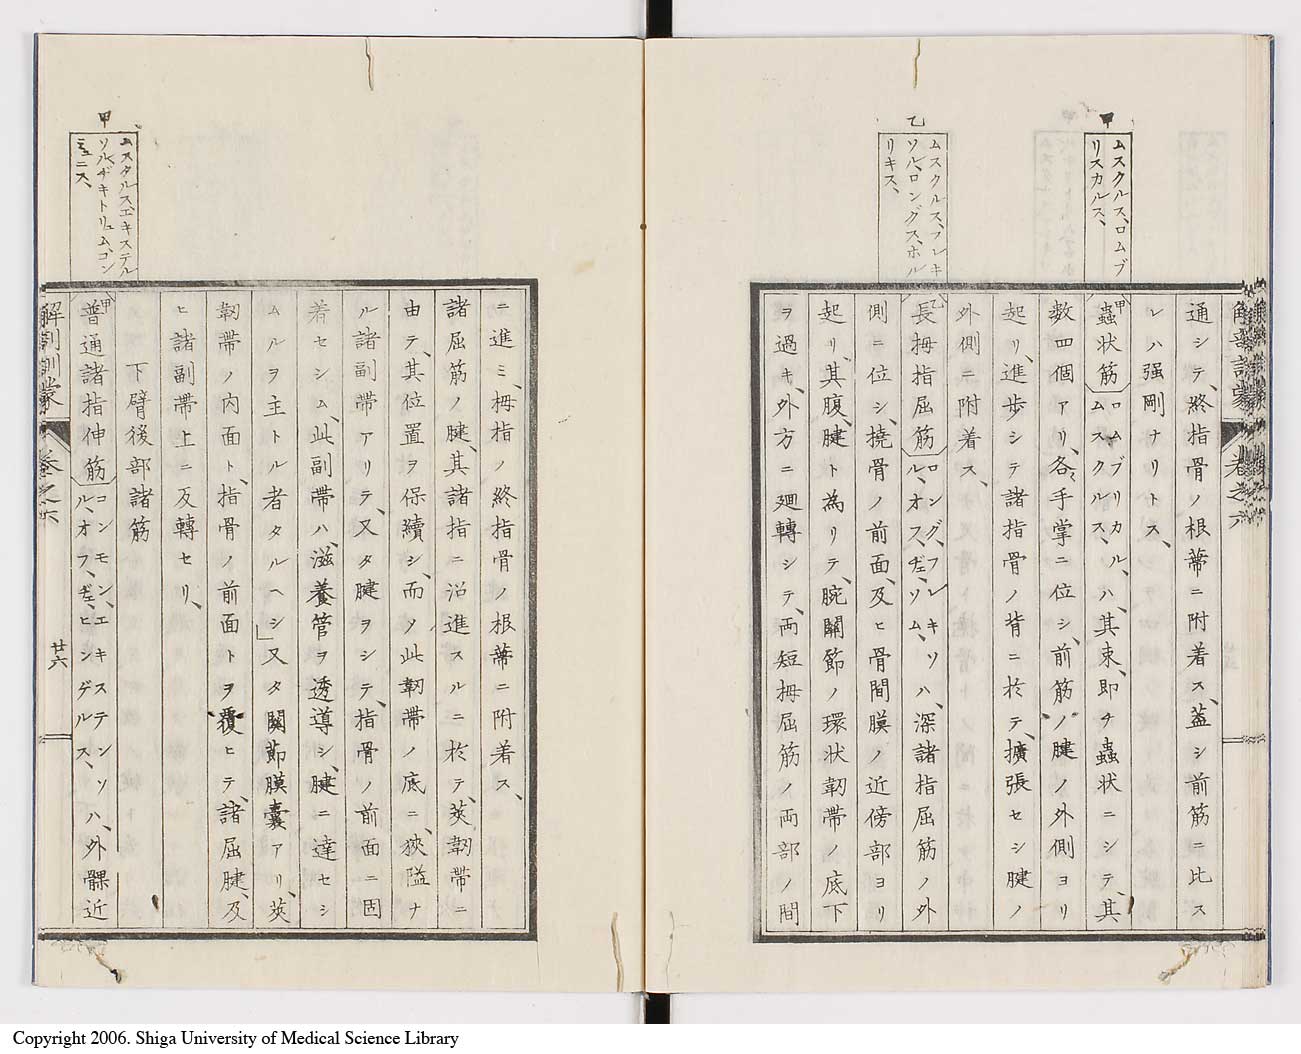 甲
ムスクルス、ロムブ
リスカルス、
乙
ムスクルス、フレキ
ソル、ロングス、ホル
リキス、
通シテ、終指骨ノ根蔕ニ附着ス、蓋シ前筋ニ比ス
レハ强剛ナリトス、
甲蟲状筋 ロムブリカル、ムスクルス、ハ、其束、即チ蟲状ニシテ、其
数四個アリ、各々手掌ニ位シ、前筋ノ腱ノ外側ヨリ
起リ、進歩シテ諸指骨ノ背ニ於テ、擴張セシ腱ノ
外側ニ附着ス、
乙長拇指屈筋 ロング、フレキソル、オフ、ゼ、ソム、ハ、深諸指屈筋ノ外
側ニ位シ、撓骨ノ前面、及ヒ骨間膜ノ近傍部ヨリ
起リ、其腹、腱ト為リテ、腕關節ノ環状韌帯ノ底下
ヲ過キ、外方ニ廻轉シテ、両短拇屈筋ノ両部ノ間
解剖訓蒙 巻之六
ニ進ミ、拇指ノ終指骨ノ根蔕ニ附着ス、
諸屈筋ノ腱、其諸指ニ沿進スルニ於テ、莢韌帯ニ
由テ、其位置ヲ保續シ、而〆此韌帯ノ底ニ、狹隘ナ
ル諸副帯アリテ、又タ腱ヲシテ、指骨ノ前面ニ固
着セシム、此副帯ハ、滋養管ヲ透導シ、腱ニ達セシ
ムルヲ主トル者タルヘシ」又タ關節膜嚢アリ、莢
韌帯ノ内面ト、指骨ノ前面トヲ覆ヒテ、諸屈腱、及
ヒ諸副帯上ニ反轉セリ、
下臂後部諸筋
甲普通諸指伸筋 コンモン、エキステンソル、オフ、ゼ、ヒンゲルス、ハ、外髁近
甲
ムスクルス、エキステル
ソル、ヂキトリュム、コン
ミュニス、
解剖訓蒙 巻之六
廿六
Copyright 2006. Shiga University of Medical Science Library